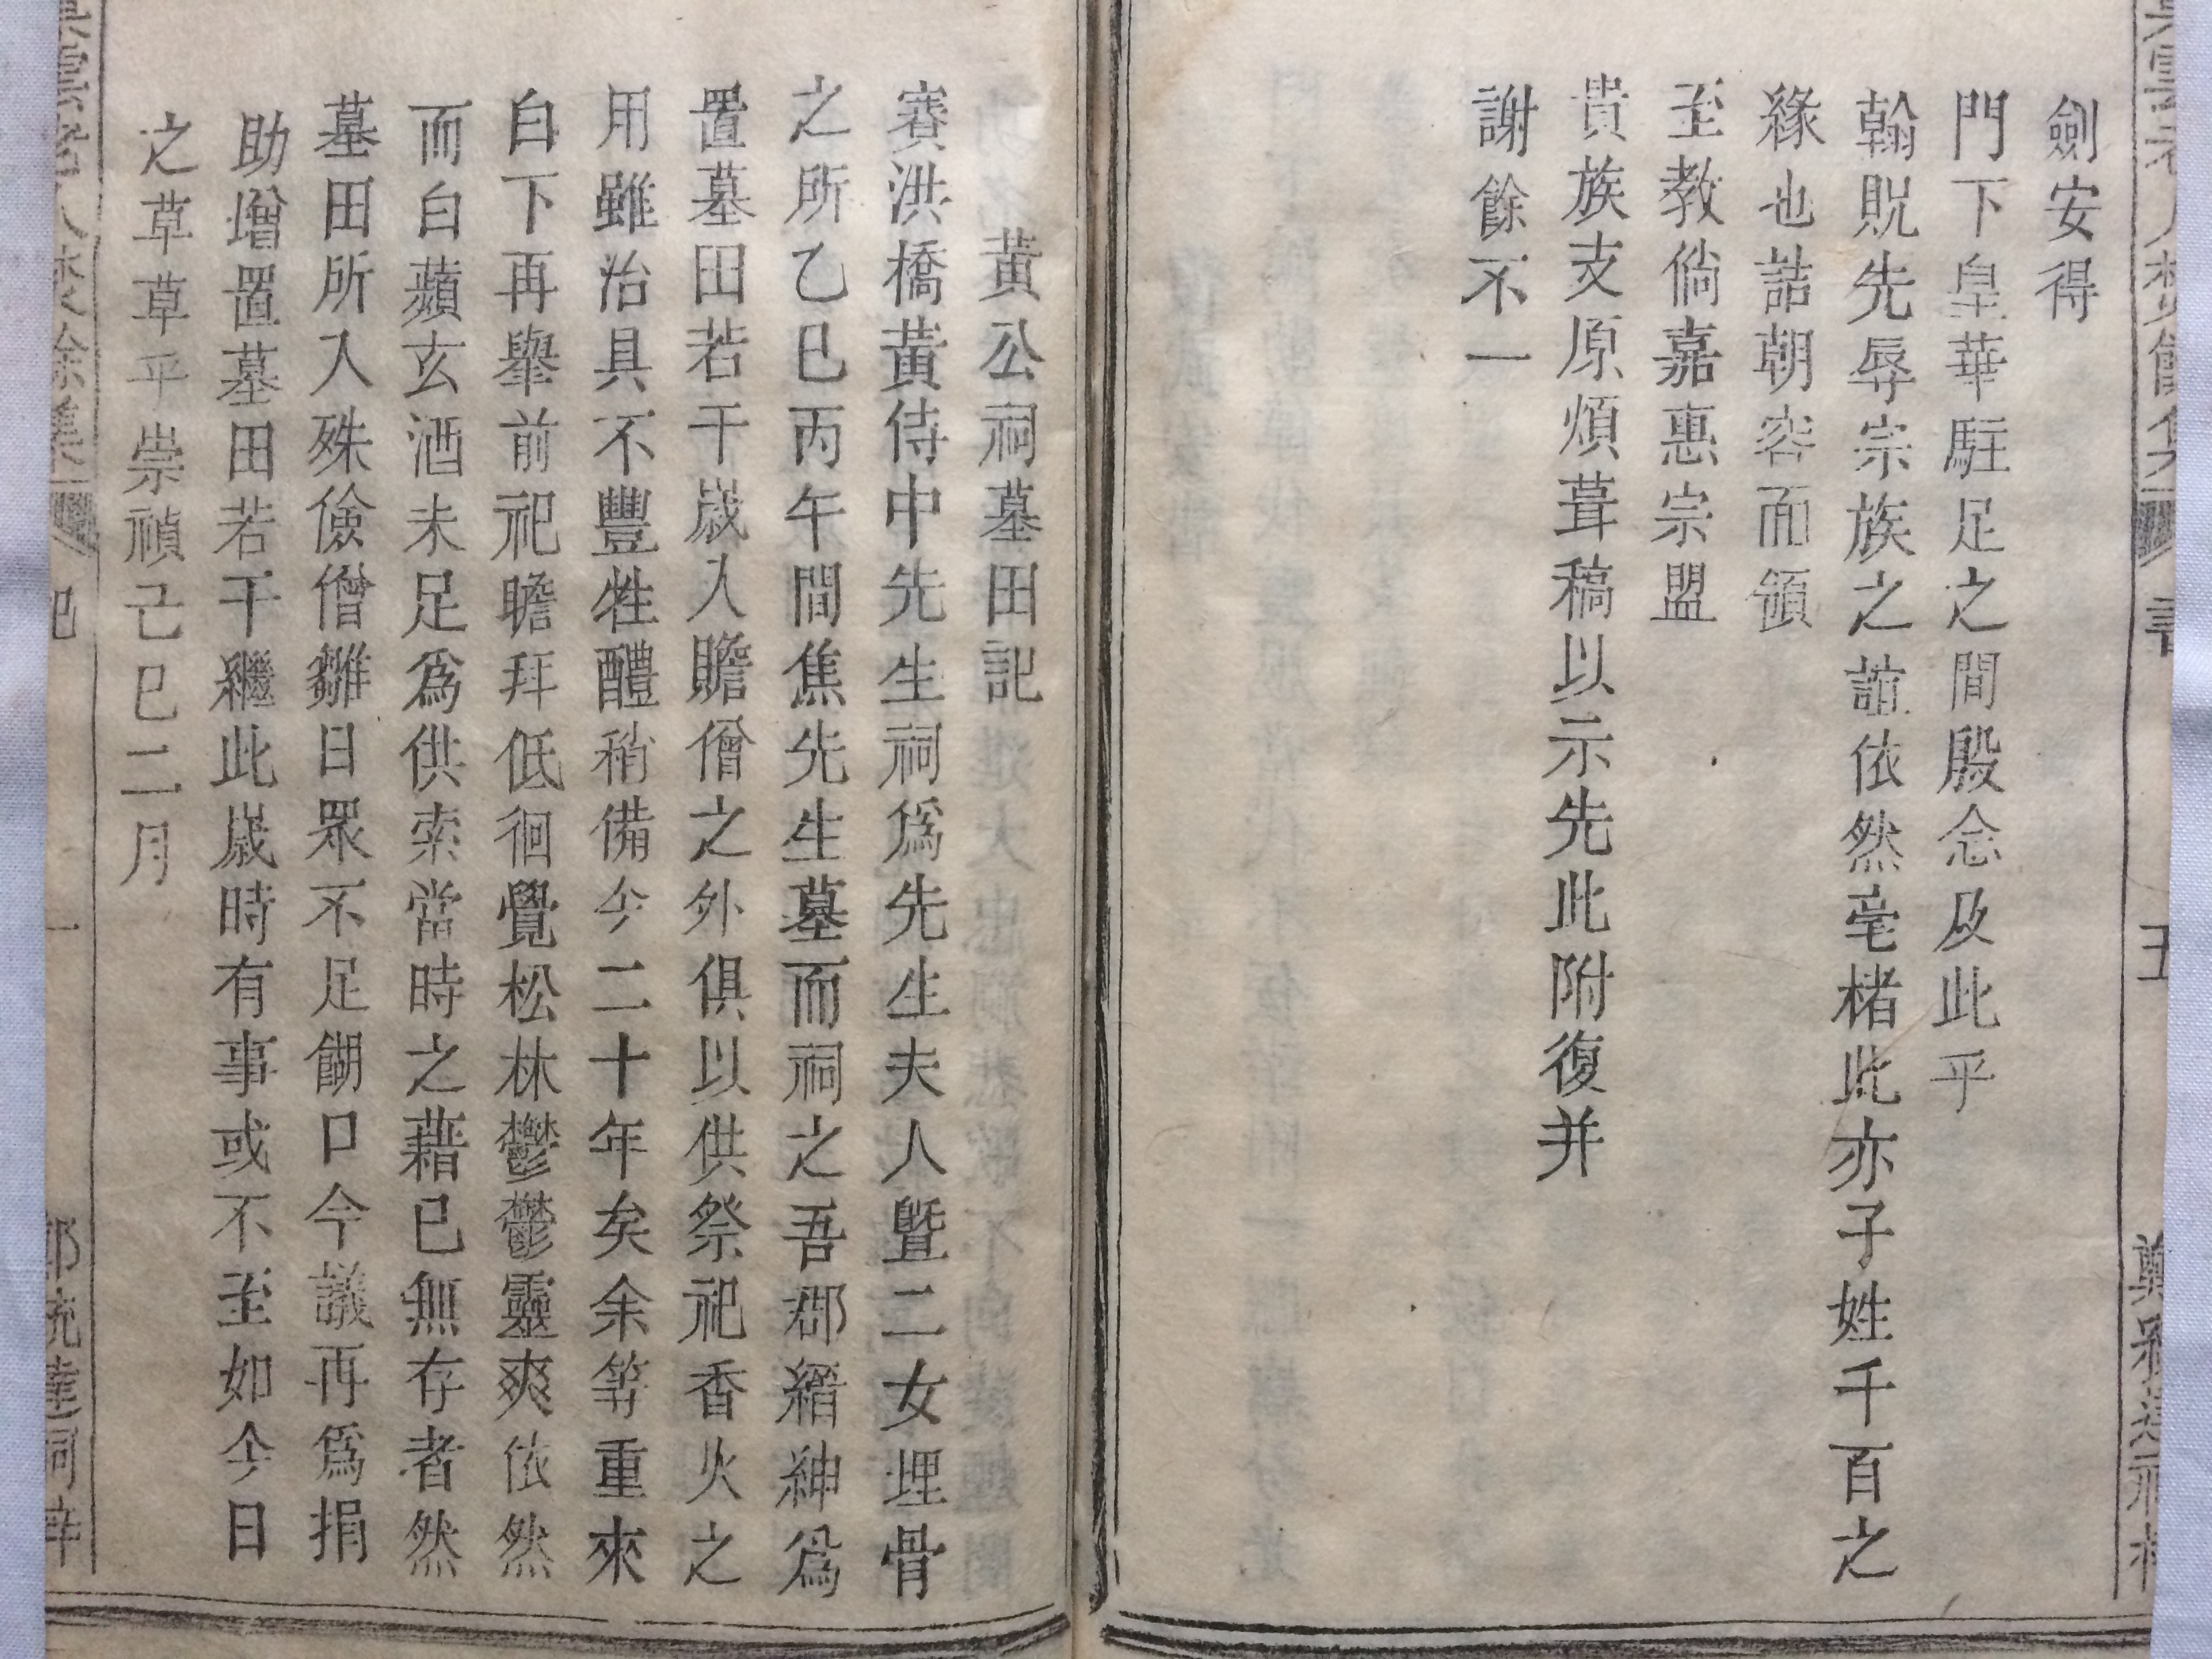 劍安得
門下皇華駐足之間殷念及此乎
翰貺先辱宗族之誼依然毫楮此亦子姓千百之
緣也詰朝容而頒
至教倘嘉惠宗盟
貴族支原煩葺稿以示先此附復并
謝餘不一
黃公祠墓田記
賽洪橋黃侍中先生祠爲先生夫人曁二女埋骨
之所乙巳丙午間焦先生墓而祠之吾郡縉紳爲
置墓田若干歲入贍僧之外俱以供祭祀香火之
用雖治具不豐牲醴稍備今二十年矣余等重來
白下再舉前祀瞻拜低徊覺松林鬱鬱靈爽依然
而白蘋玄酒未足爲供索當時之藉已無存者然
墓田所入殊儉僧雛日眾不足餬口今議再爲捐
助增置墓田若干繼此歲時有事或不至如今日
之草草乎崇禎己巳二月